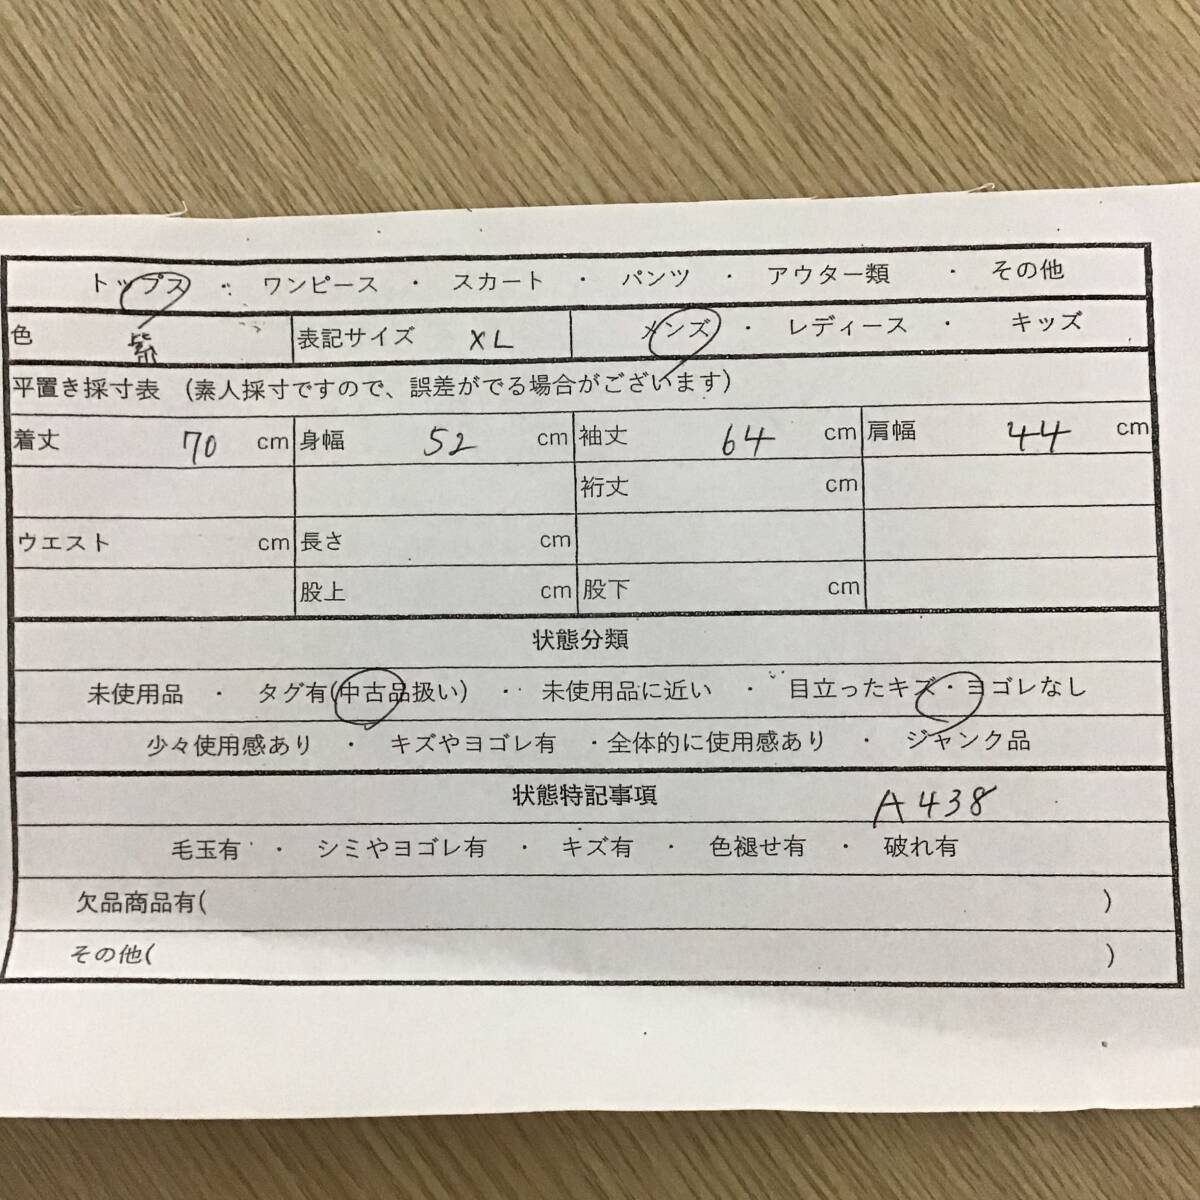 トップス ・ ワンピース ・ スカート ・ パンツ ・ アウター類 ・ その他
色 紫 表記サイズ XL メンズ ・ レディース ・ キッズ
平置き採寸表 (素人採寸ですので、誤差がでる場合がございます)
着丈 70 cm 身幅 52 cm 袖丈 64 cm 肩幅 44 cm
裄丈 cm
ウエスト cm 長さ cm
股上 cm 股下 cm
状態分類
未使用品 ・ タグ有(中古品扱い) ・ 未使用品に近い ・ 目立ったキズ・ヨゴレなし
少々使用感あり ・ キズやヨゴレ有 ・全体的に使用感あり ・ ジャンク品
状態特記事項 A438
毛玉有 ・ シミやヨゴレ有 ・ キズ有 ・ 色褪せ有 ・ 破れ有
欠品商品有( )
その他( )